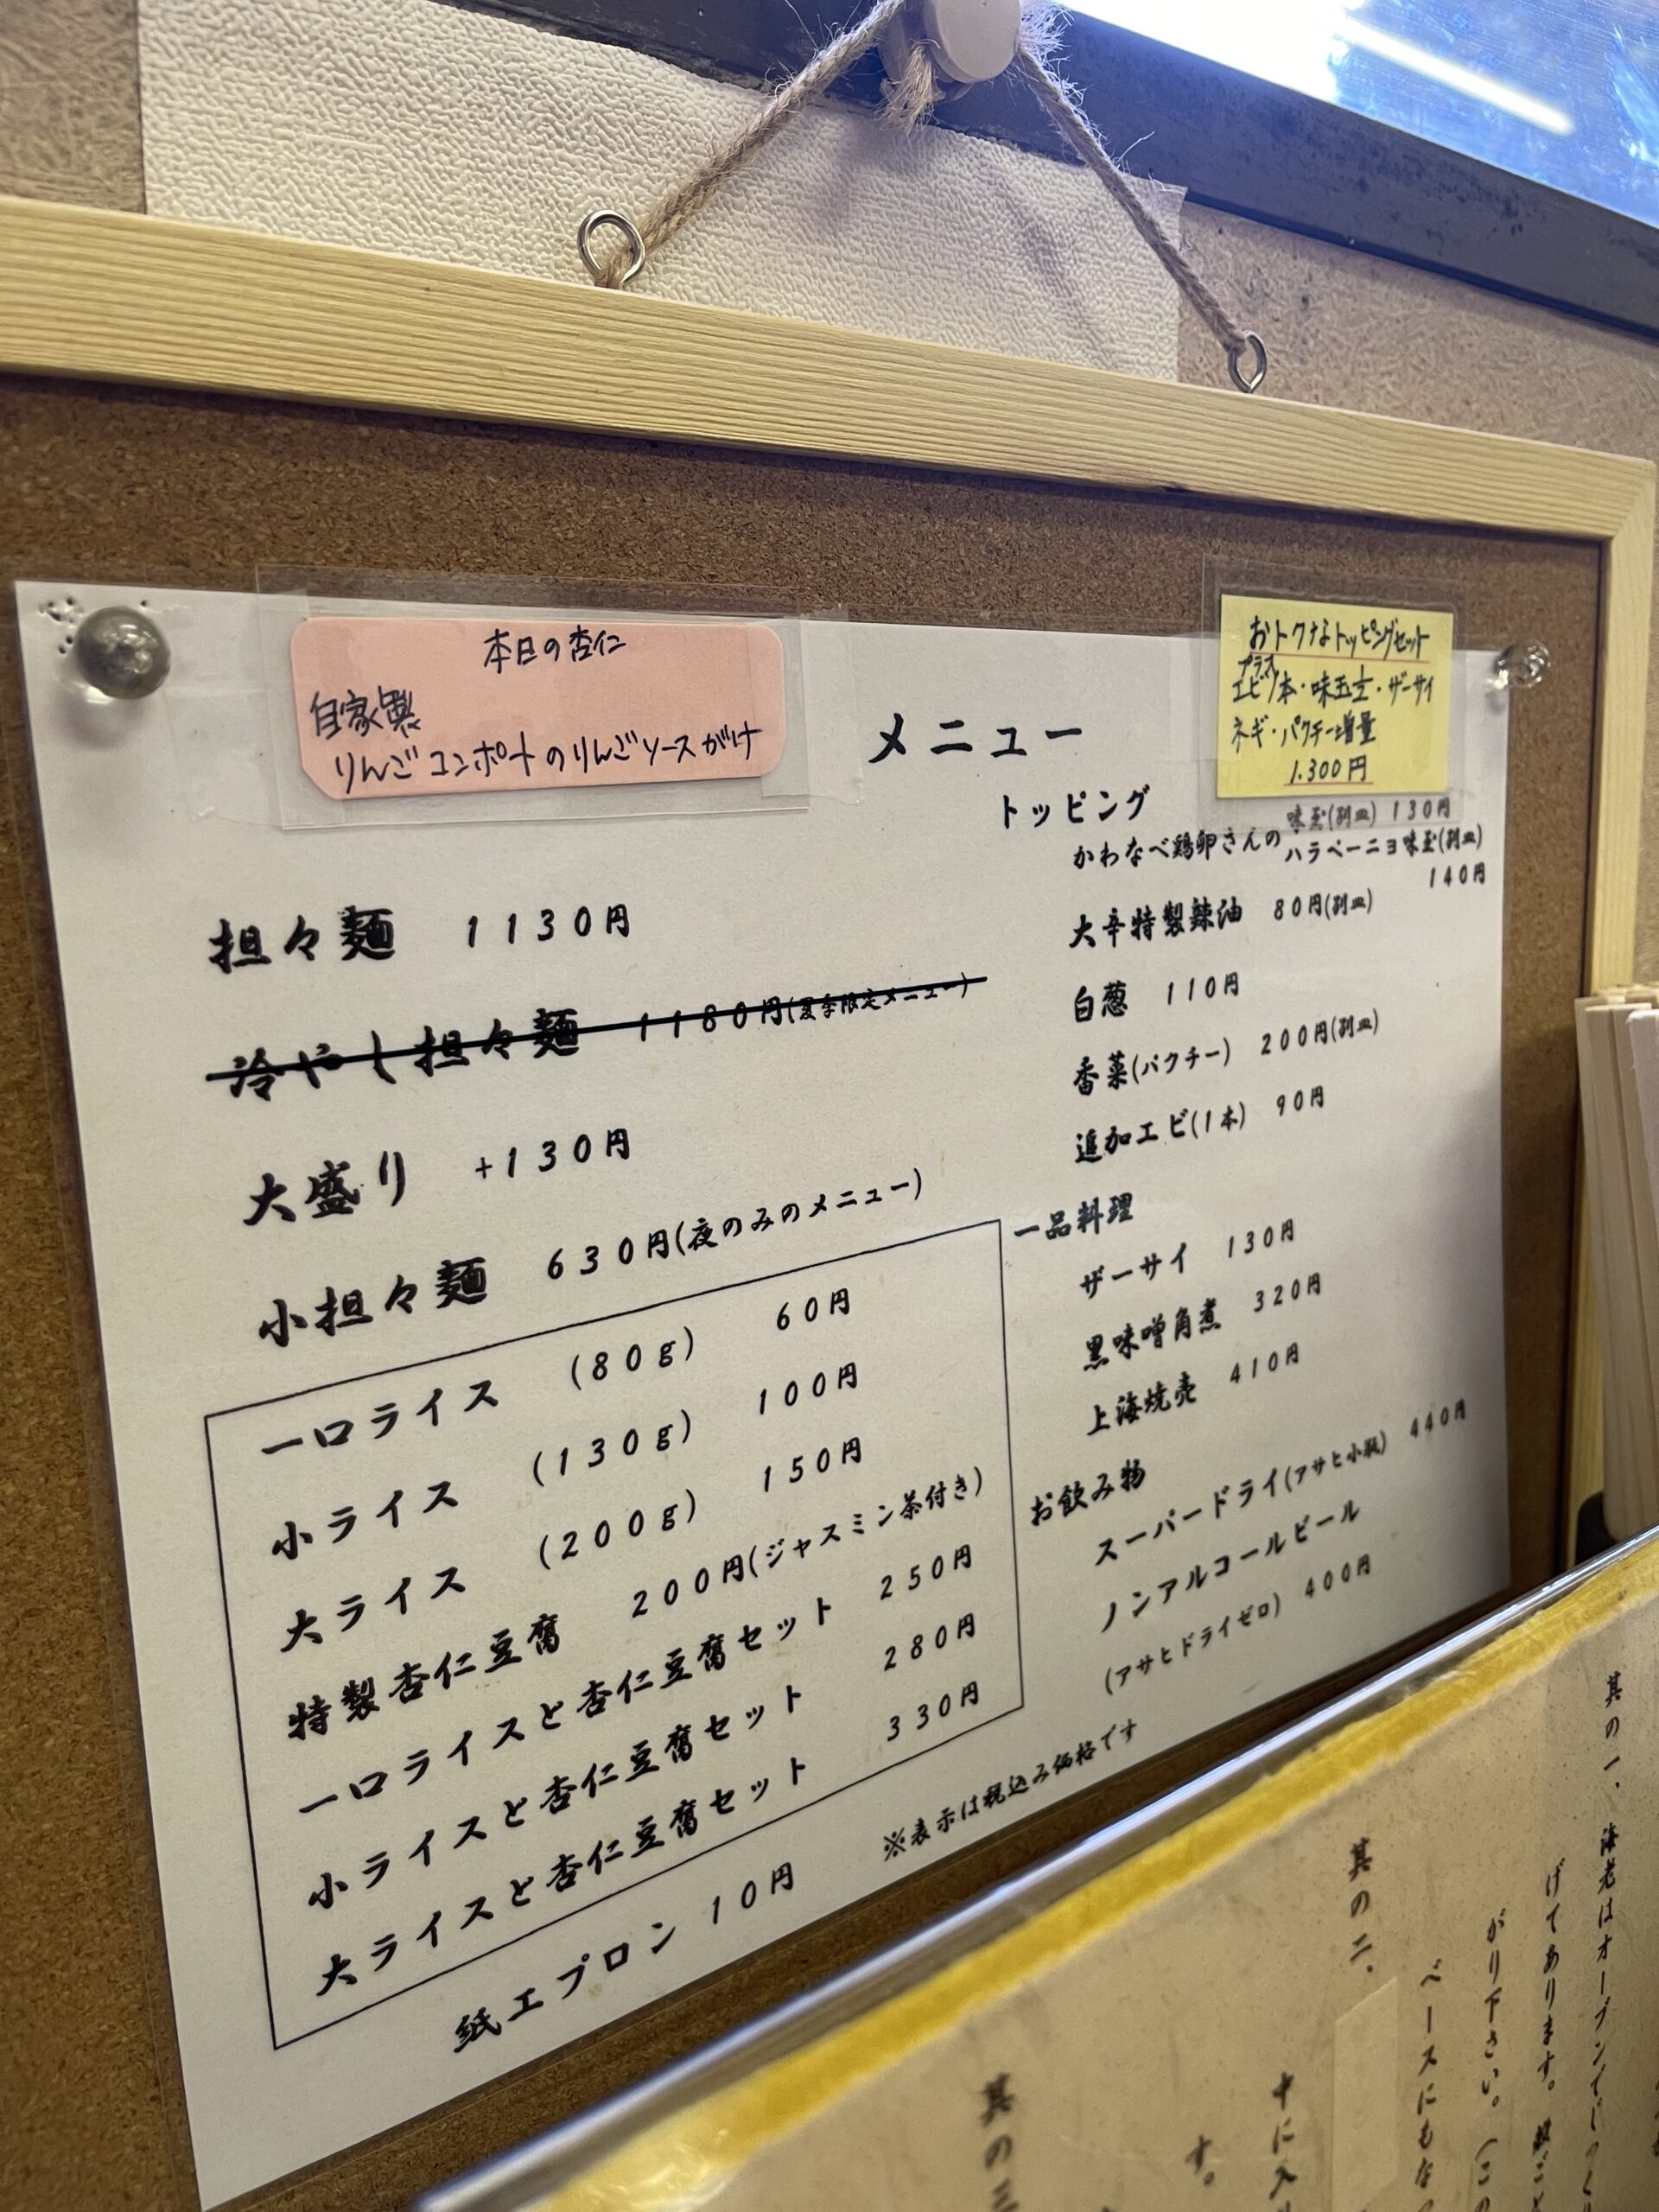 本日の杏仁
自家製
りんごコンポートのりんごソースがけ
おトクなトッピングセット
プラス
エビ1本・味玉・ザーサイ
ネギ・パクチー増量
1.300円
メニュー
担々麺 1130円
冷やし担々麺 1180円(夏季限定メニュー)
大盛り +130円
小担々麺 630円(夜のみのメニュー)
一口ライス (80g) 60円
小ライス (130g) 100円
大ライス (200g) 150円
特製杏仁豆腐 200円(ジャスミン茶付き)
一口ライスと杏仁豆腐セット 250円
小ライスと杏仁豆腐セット 280円
大ライスと杏仁豆腐セット 330円
紙エプロン 10円
トッピング
味玉(別皿) 130円
かわなべ鶏卵さんの
ハラペーニョ味玉(別皿)
140円
大辛特製辣油 80円(別皿)
白葱 110円
香菜(パクチー) 200円(別皿)
追加エビ(1本) 90円
一品料理
ザーサイ 130円
黒味噌角煮 320円
上海焼売 410円
お飲み物
スーパードライ(アサヒ小瓶) 440円
ノンアルコールビール
(アサヒドライゼロ) 400円
※表示は税込み価格です
其の一、海老はオーブンでじっくり
げてあります。
がり下さい。(この
其の二、
ベースにもなっ
十に入
す。
其の三